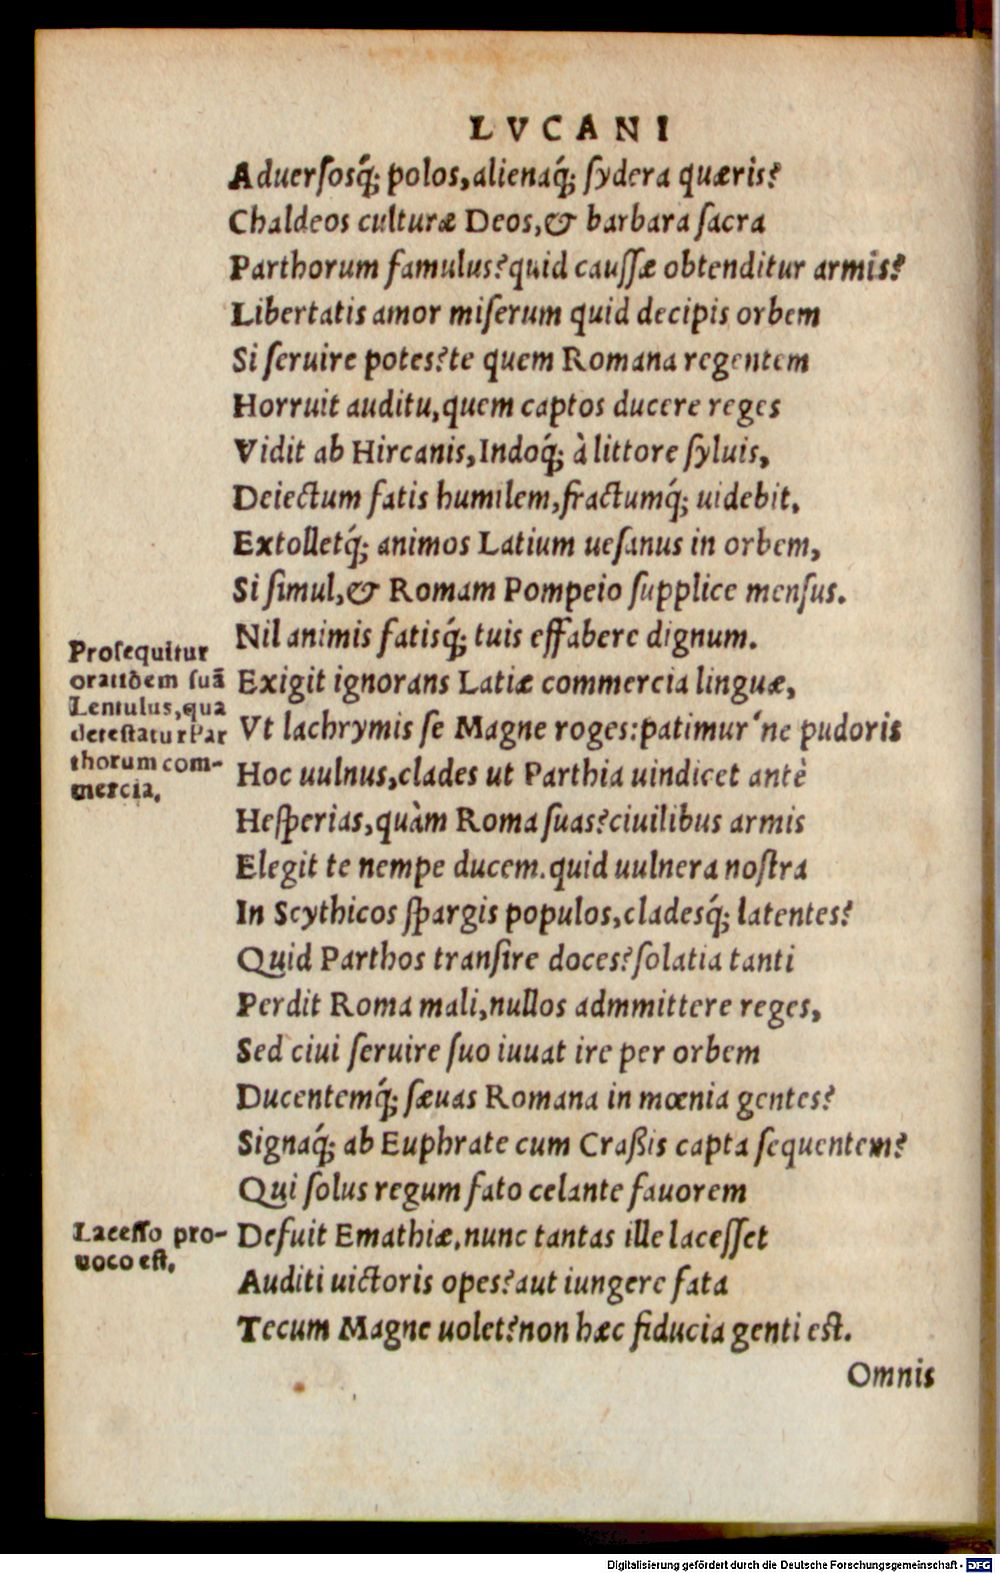 LVCANI
Aduerſosq́; polos,alienaq́; ſydera quæris?
Chaldeos culturæ Deos,& barbara ſacra
Parthorum famulus?quid cauſſæ obtenditur armis?
Libertatis amor miſerum quid decipis orbem
Si ſeruire potes?te quem Romana regentem
Horruit auditu,quem captos ducere reges
Vidit ab Hircanis,Indoq́; à littore ſyluis,
Deiectum fatis humilem,fractumq́; uidebit,
Extolletq́; animos Latium ueſanus in orbem,
Si ſimul,& Romam Pompeio ſupplice menſus.
Nil animis fatisq́; tuis effabere dignum.
Exigit ignorans Latiæ commercia linguæ,
Vt lachrymis ſe Magne roges:patimur'ne pudoris
Hoc uulnus,clades ut Parthia uindicet antè
Heſperias,quàm Roma ſuas?ciuilibus armis
Elegit te nempe ducem.quid uulnera noſtra
In Scythicos ſpargis populos,cladesq́; latentes?
Quid Parthos tranſire doces?ſolatia tanti
Perdit Roma mali,nullos admmittere reges,
Sed ciui ſeruire ſuo iuuat ire per orbem
Ducentemq́; ſæuas Romana in mœnia gentes?
Signaq́; ab Euphrate cum Craßis capta ſequentem?
Qui ſolus regum fato celante fauorem
Defuit Emathiæ,nunc tantas ille laceſſet
Auditi uictoris opes?aut iungere fata
Tecum Magne uolet?non hæc fiducia genti eſt.
Omnis
Proſequitur
orationem ſuā
Lentulus,qua
deteſtatur Par
thorum com-
mercia.
Laceſſo pro-
uoco eſt.
Digitalisierung gefördert durch die Deutsche Forschungsgemeinschaft - DFG